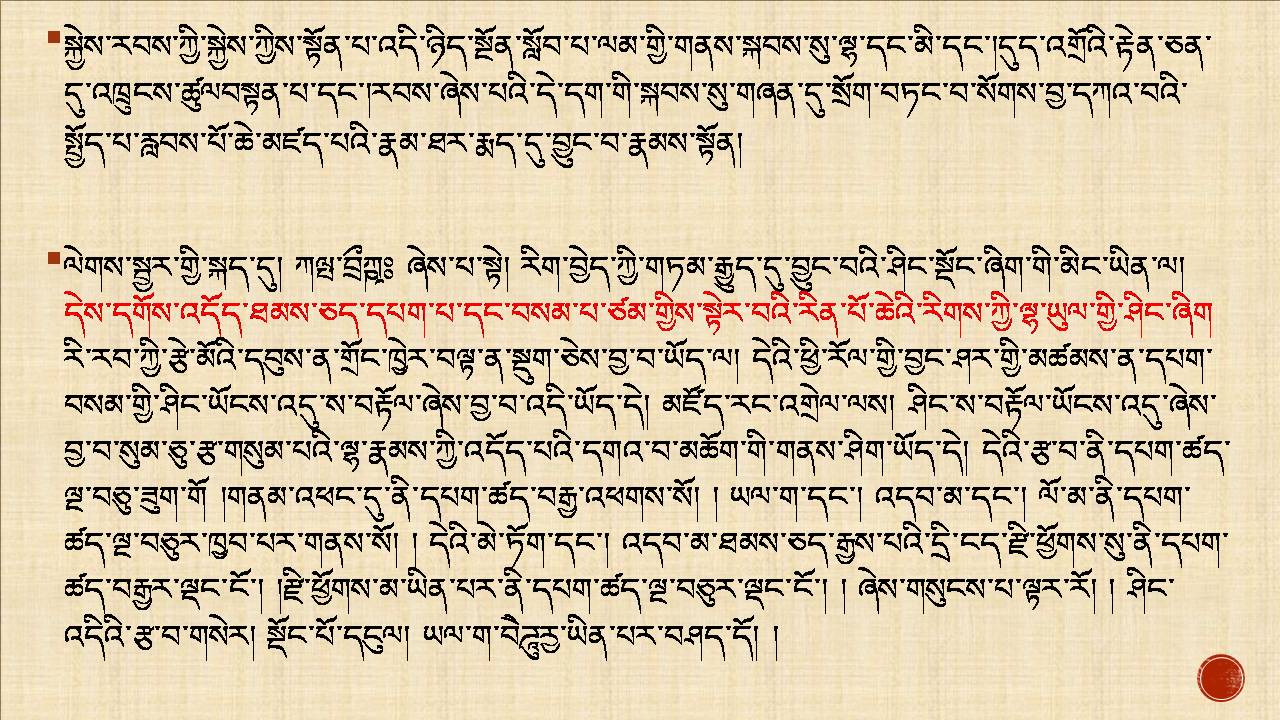 སྐྱེས་རབས་ཀྱི་སྐྱེས་ཀྱིས་སྟོན་པ་འདི་ཉིད་སྔོན་སློབ་པ་ལམ་གྱི་གནས་སྐབས་སུ་ལྷ་དང་མི་དང་།དུད་འགྲོའི་རྟེན་ཅན་
དུ་འཁྲུངས་ཚུལབསྟན་པ་དང་།རབས་ཞེས་པའི་དེ་དག་གི་སྐབས་སུ་གཞན་དུ་སྲོག་བཏང་བ་སོགས་བྱ་དཀའ་བའི་
སྤྱོད་པ་རླབས་པོ་ཆེ་མཛད་པའི་རྣམ་ཐར་རྨད་དུ་བྱུང་བ་རྣམས་སྟོན།
ལེགས་སྦྱར་གྱི་སྐད་དུ། ཞེས་པ་སྟེ། རིག་བྱེད་ཀྱི་གཏམ་རྒྱུད་དུ་བྱུང་བའི་ཤིང་སྡོང་ཞིག་གི་མིང་ཡིན་ལ།
དེས་དགོས་འདོད་ཐམས་ཅད་དཔག་པ་དང་བསམ་པ་ཙམ་གྱིས་སྟེར་བའི་རིན་པོ་ཆེའི་རིགས་ཀྱི་ལྷ་ཡུལ་གྱི་ཤིང་ཞིག
རི་རབ་ཀྱི་རྩེ་མོའི་དབུས་ན་གྲོང་ཁྱེར་བལྟ་ན་སྡུག་ཅེས་བྱ་བ་ཡོད་ལ། དེའི་ཕྱི་རོལ་གྱི་བྱང་ཤར་གྱི་མཚམས་ན་དཔག་
བསམ་གྱི་ཤིང་ཡོངས་འདུ་ས་བརྟོལ་ཞེས་བྱ་བ་འདི་ཡོད་དེ། མཛོད་རང་འགྲེལ་ལས། ཤིང་ས་བརྟོལ་ཡོངས་འདུ་ཞེས་
བྱ་བ་སུམ་ཅུ་རྩ་གསུམ་པའི་ལྷ་རྣམས་ཀྱི་འདོད་པའི་དགའ་བ་མཆོག་གི་གནས་ཤིག་ཡོད་དེ། དེའི་རྩ་བ་ནི་དཔག་ཚད་
ལྔ་བཅུ་ཟུག་གོ །གནམ་འཕང་དུ་ནི་དཔག་ཚད་བརྒྱ་འཕགས་སོ། ། ཡལ་ག་དང་། འདབ་མ་དང་། ལོ་མ་ནི་དཔག་
ཚད་ལྔ་བཅུར་ཁྱབ་པར་གནས་སོ། ། དེའི་མེ་ཏོག་དང་། འདབ་མ་ཐམས་ཅད་རྒྱས་པའི་དྲི་ངད་རྫི་ཕྱོགས་སུ་ནི་དཔག་
ཚད་བརྒྱར་ལྡང་ངོ་། །རྫི་ཕྱོགས་མ་ཡིན་པར་ནི་དཔག་ཚད་ལྔ་བཅུར་ལྡང་ངོ་། ། ཞེས་གསུངས་པ་ལྟར་རོ། ། ཤིང་
འདིའི་རྩ་བ་གསེར། སྡོང་པོ་དངུལ། ཡལ་ག་བཻཌཱུརྱ་ཡིན་པར་བཤད་དོ། །